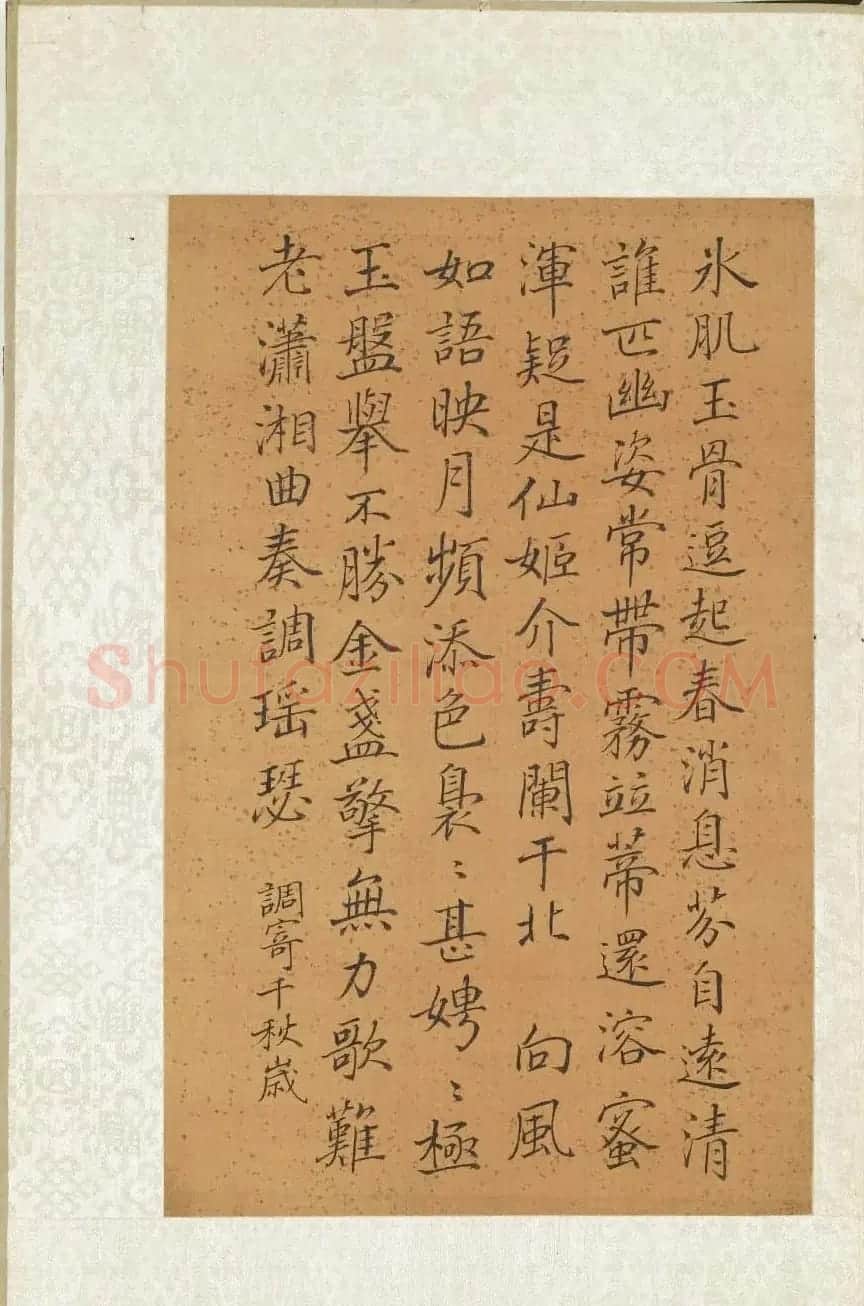 氷肌玉骨逗起春消息芬自遠清
誰匹幽姿常帶霧竝蒂還溶蜜
渾疑是仙姬介壽闌干北 向風
如語映月頻添色裊〻甚娉〻極
玉盤擧不勝金盞擎無力歌難
老瀟湘曲奏調瑶瑟 調寄千秋歲
Shufaziliao.COM